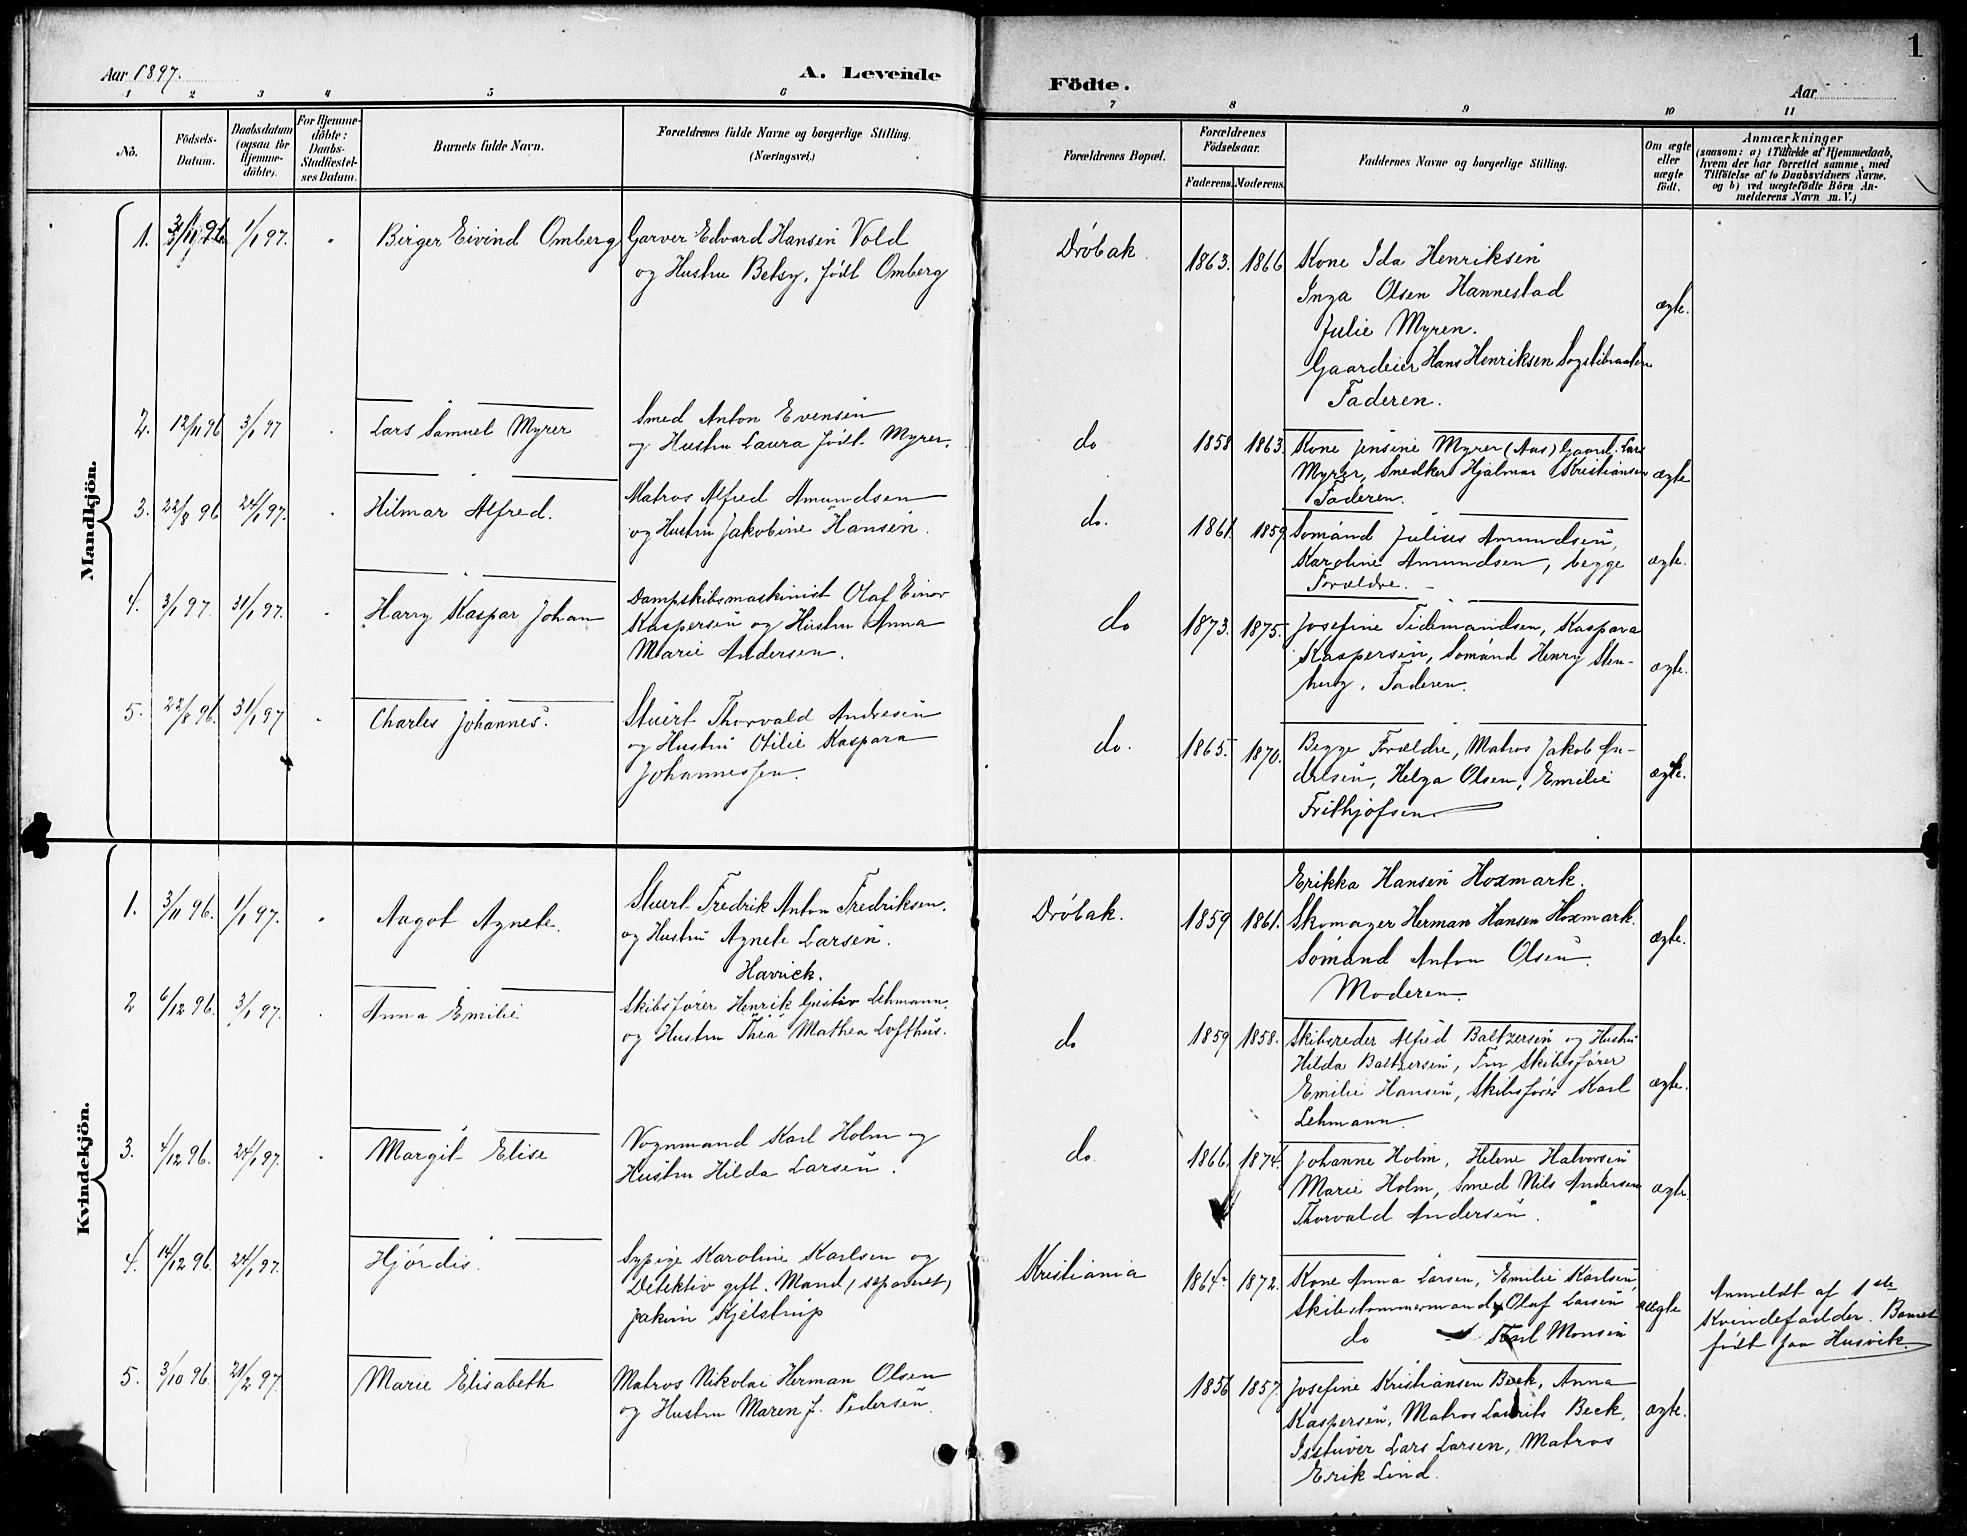 Aar 1897.
A. Levende
Födte.
Aar
1
1 2 3 4 5 6 7 8 9 10 11
No.
Födsels-
Datum.
Daabsdatum
(ogsaa for
Hjemme-
döbte).
For Hjemme-
döbte:
Daabs-
Stadfæstel-
ses Datum.
Barnets fulde Navn.
Forældrenes fulde Navne og borgerlige Stilling.
(Næringsvei.)
Forældrenes Bopæl.
Forældrenes
Födselsaar.
Faderens. Moderens.
Faddernes Navne og borgerlige Stilling.
Om ægte
eller
uægte
födt.
Anmærkninger
(saasom: a) i Tilfælde af Hjemmedaab,
hvem der har forrettet samme, med
Tilföielse af to Daabsvidners Navne.
og b) ved uægtefödte Börn An-
melderens Navn m. V.)
Mandkjön.
1. 1/1 97. Birger Eivind Omberg
Garver Edvard Hansen Vold
og Hustru Betsy, født Omberg
Drøbak. 1863. 1866
Kone Ida Henriksen
Inga Olsen Hannestad
Julie Myren.
Gaardeier Hans Henriksen
Faderen.
ægte.
2. 12/11 96 3/1 97 Lars Samuel Myrer
Smed Anton Evensen
og Hustru Laura født Myrer.
do 1858 1863.
Kone Jensine Myrer (Aas) Gaard. Lars
Myrer, Snedker Hjalmar Kristiansen
Faderen.
ægte
3. 22/8 96 24/1 97. Hilmar Alfred.
Matros Alfred Amundsen
og Hustru Jakobine Hansen.
do. 1861. 1859.
Sømand Julius Amundsen,
Karoline Amundsen, begge
Forældre.
ægte.
4. 3/1 97. 31/1 97. Harry Kaspar Johan
Dampskibsmaskinist Olaf Einar
Kaspersen og Hustru Anna
Marie Andersen.
do 1873. 1875.
Josefine Tidemandsen, Kaspara
Kaspersen, Sømand Henry Sten-
berg, Faderen.
ægte.
5. 22/8 96. 31/1 97 Charles Johannes.
Stuert Thorvald Andresen
og Hustru Otilie Kaspara
Johannessen.
do. 1865. 1870.
Begge Forældre, Matros Jakob An-
dersen, Helga Olsen, Emilie
Frithjofsen.
ægte.
Kvindekjön.
1. 3/11 96. 1/1 97. Aagot Agnete.
Stuert Fredrik Anton Fredriksen.
og Hustru Agnete Larsen.
Havrick.
Drøbak. 1859 1861.
Erikka Hansen Hoxmark.
Skomager Herman Hansen Hoxmark.
Sømand Anton Olsen.
Moderen.
ægte.
2 6/12 96. 3/1 97. Anna Emilie
Skibsfører Henrik Gustav Lehmann.
og Hustru Thea Mathea Lofthus.
do 1859 1858.
Skibsreder Alfred Baltzersen og Hustru
Hilda Baltzersen, Fru Skibsfører
Emilie Hansen, Skibsfører Karl
Lehmann.
ægte.
3. 4/12 96. 24/1 97. Margit Elise
Vognmand Karl Holm og
Hustru Hilda Larsen.
do. 1866. 1874.
Johanne Holm, Helene Halvorsen
Marie Holm, Smed Nils Andersen
Thorvald Andersen.
ægte
4. 14/12 96. 24/1 97. Hjørdis.
Sypige Karoline Karlsen og
Detektiv gift. Mand (separeret)
Jakim Kjelstrup
Kristiania 1864 1872.
Kone Anna Larsen, Emilie Karlsen,
Skibstømmermand Olaf Larsen
do Karl Monsen
uægte
Anmeldt af 1ste
Kvindefadder. Barnet
født paa Husvik.
5. 3/10 96. 21/2 97. Marie Elisabeth
Matros Nikolai Herman Olsen
og Hustru Maren J. Pedersen.
1856 1857.
Josefine Kristiansen Beck, Anna
Kaspersen, Matros Laurits Beck,
Lars Larsen, Matros
Erik Lind.
ægte.